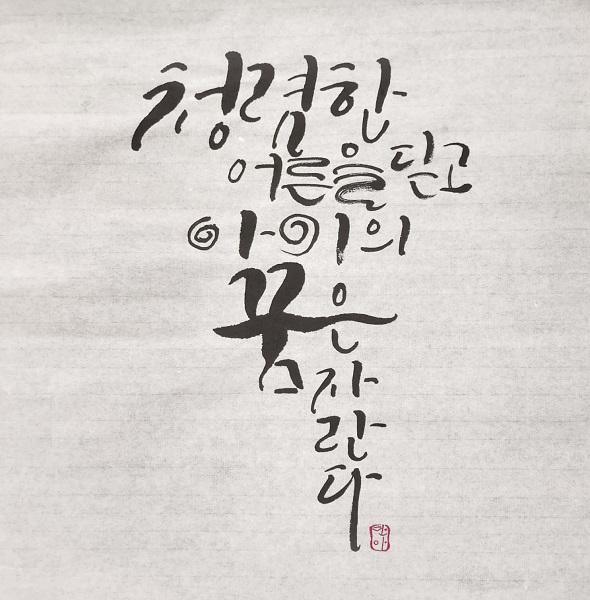 청렴한
어른을 딛고
아이의
꿈은
자
란
다